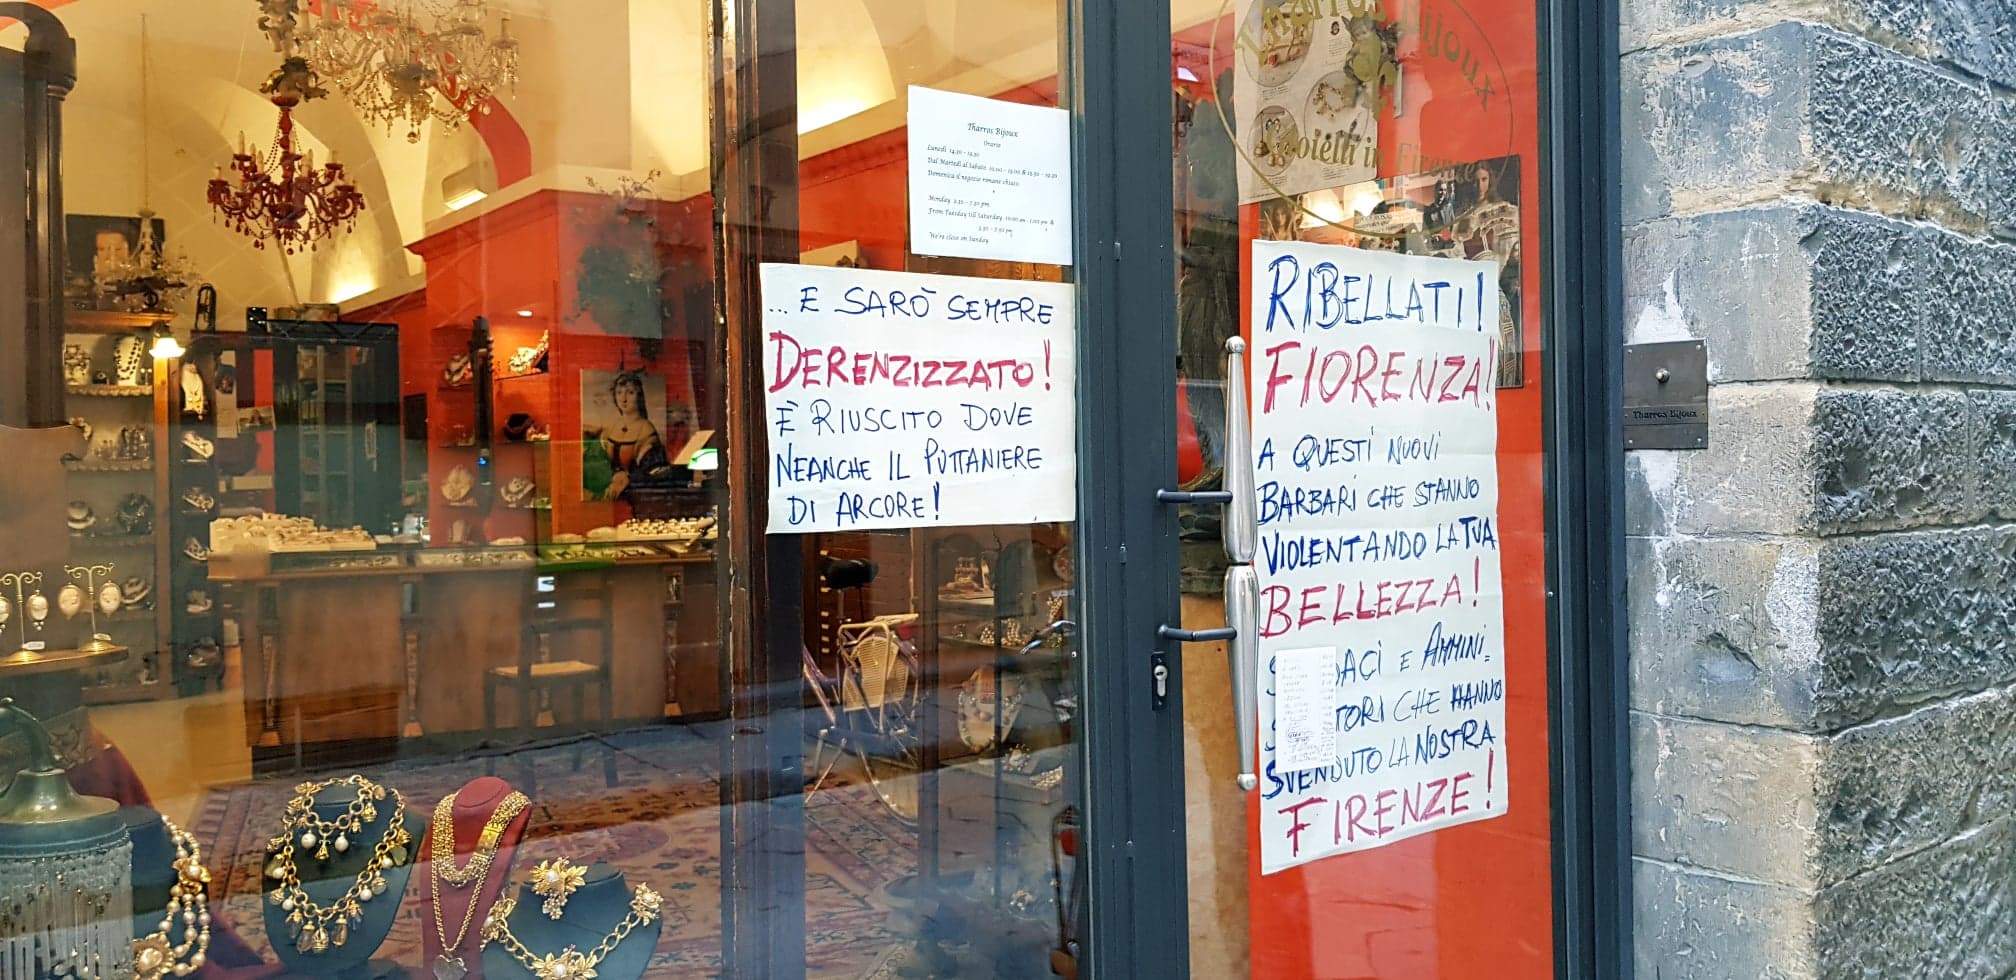 Tharros Bijoux
Orario
Lunedì 14.30 - 19.30
Dal Martedì al Sabato 10.00 - 13.00 & 15.30 - 19.30
Domenica il negozio rimane chiuso
Monday 2.30 - 7.30 pm
From Tuesday till Saturday 10:00 am - 1:00 pm &
3.30 - 7.30 pm
We're close on Sunday
... E SARÒ SEMPRE
DERENZIZZATO!
È RIUSCITO DOVE
NEANCHE IL PUTTANIERE
DI ARCORE!
Tharros Bijoux
Gioielli in Firenze
RIBELLATI!
FIORENZA!
A QUESTI NUOVI
BARBARI CHE STANNO
VIOLENTANDO LA TUA
BELLEZZA!
E AMMINI=
TORI CHE HANNO
SVENDUTO LA NOSTRA
FIRENZE!
Tharros Bijoux